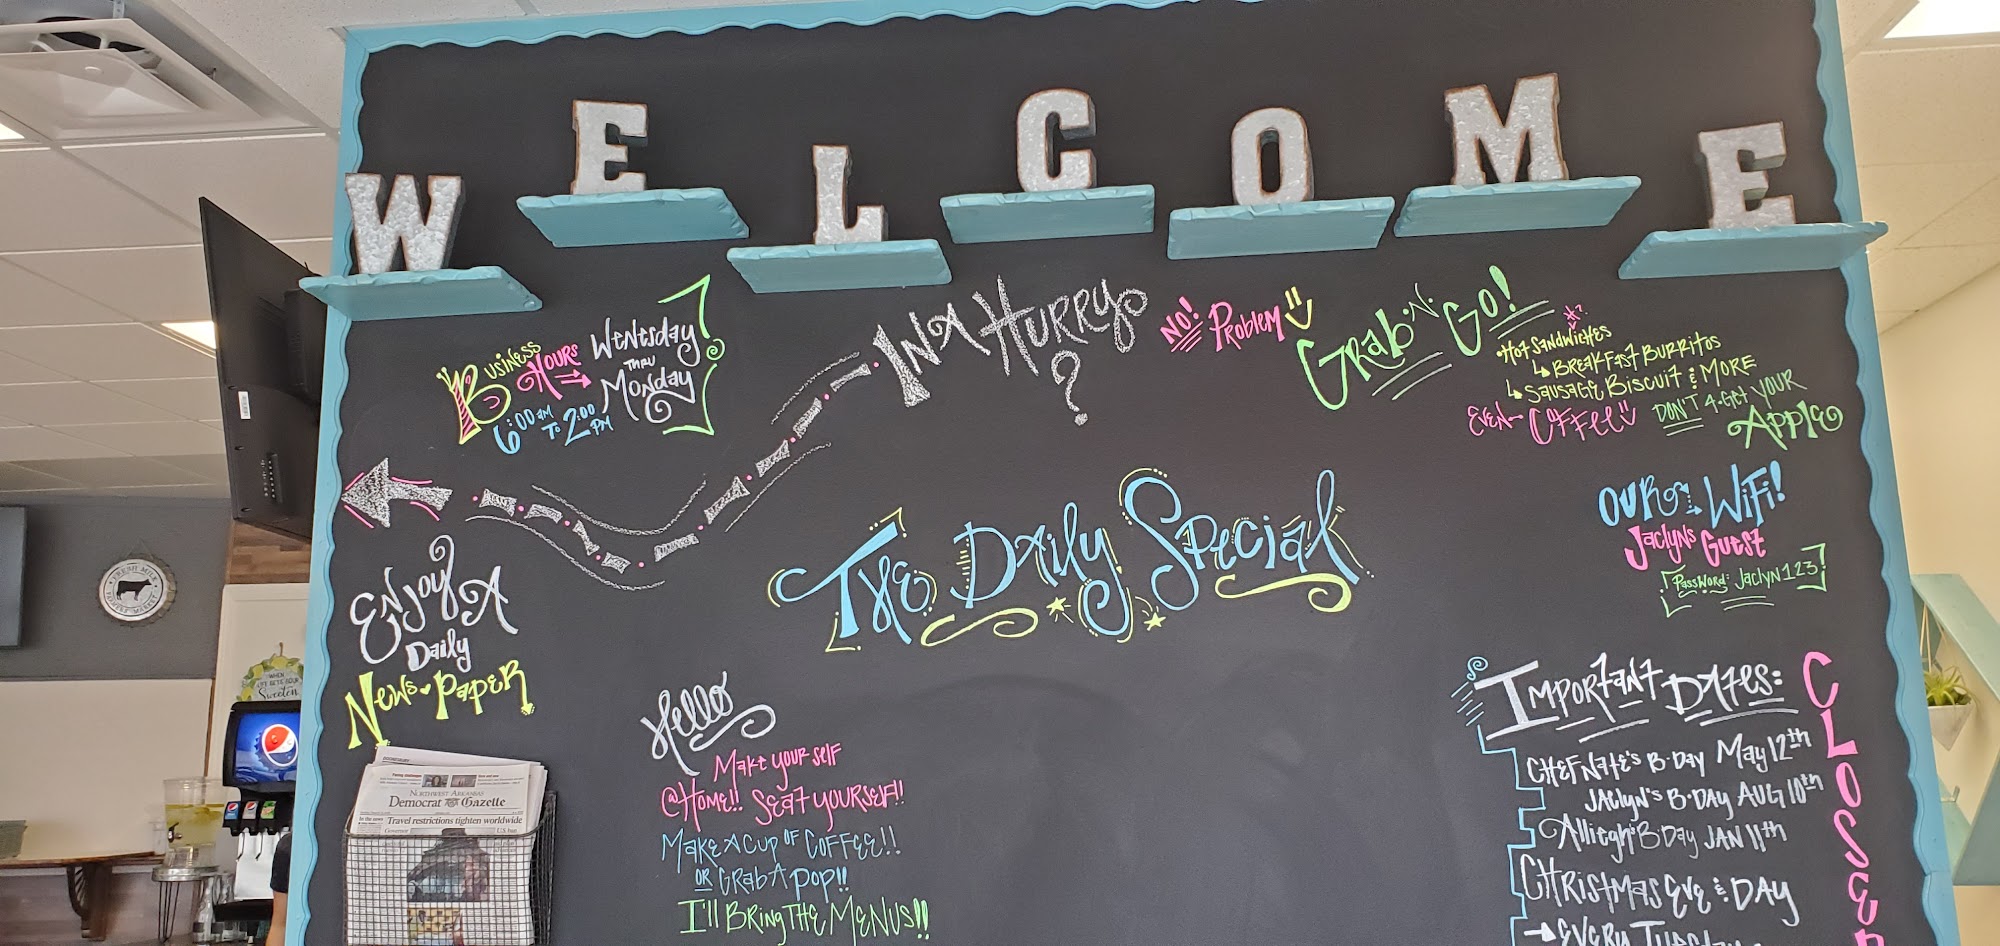 WELCOME
Business Hours → Wednesday
Thru
Monday
6:00 am to 2:00 pm
In A Hurry?
No! Problem
Grab·N·Go!
•Hot Sandwiches
↳ Breakfast Burritos
↳ Sausage Biscuit & More
Even~ Coffee
Don't 4-get your
Apple
Our WiFi!
Jaclyns Guest
Password: Jaclyn123
Enjoy A
Daily
News♥Paper
The Daily Special
Hello
Make your self
@Home!! Seat yourself!!
Make A Cup of Coffee!!
or Grab A Pop!!
I'll Bring The Menus!!
Important Dates:
Chef Nate's B-Day May 12th
Jaclyn's B-Day Aug 10th
Alliegh's B-Day Jan 11th
Christmas Eve & Day
→ Every Tuesday
CLOSED
Northwest Arkansas
Democrat Gazette
Travel restrictions tighten worldwide
In the news
Governor
U.S. ban
FRESH MILK
FARMERS MARKET
WHEN
LIFE GETS SOUR
Sweeten